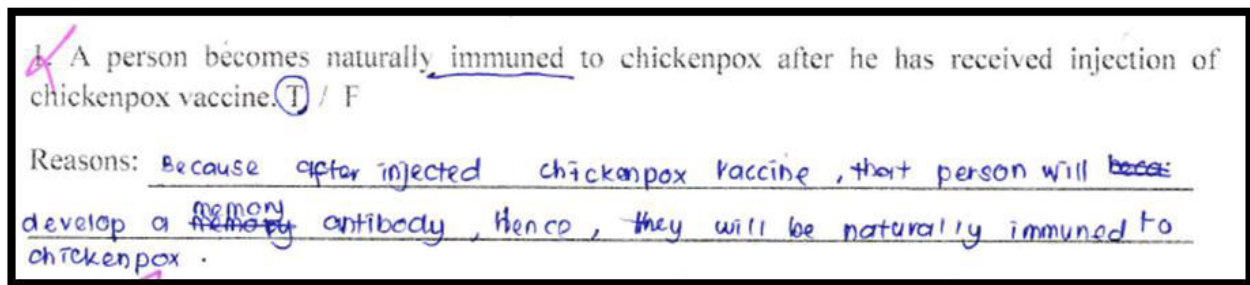 1. A person becomes naturally immuned to chickenpox after he has received injection of
chickenpox vaccine. T / F
Reasons: Because after injected chickenpox vaccine, that person will
develop a memory antibody, Hence, they will be naturally immuned to
chickenpox.